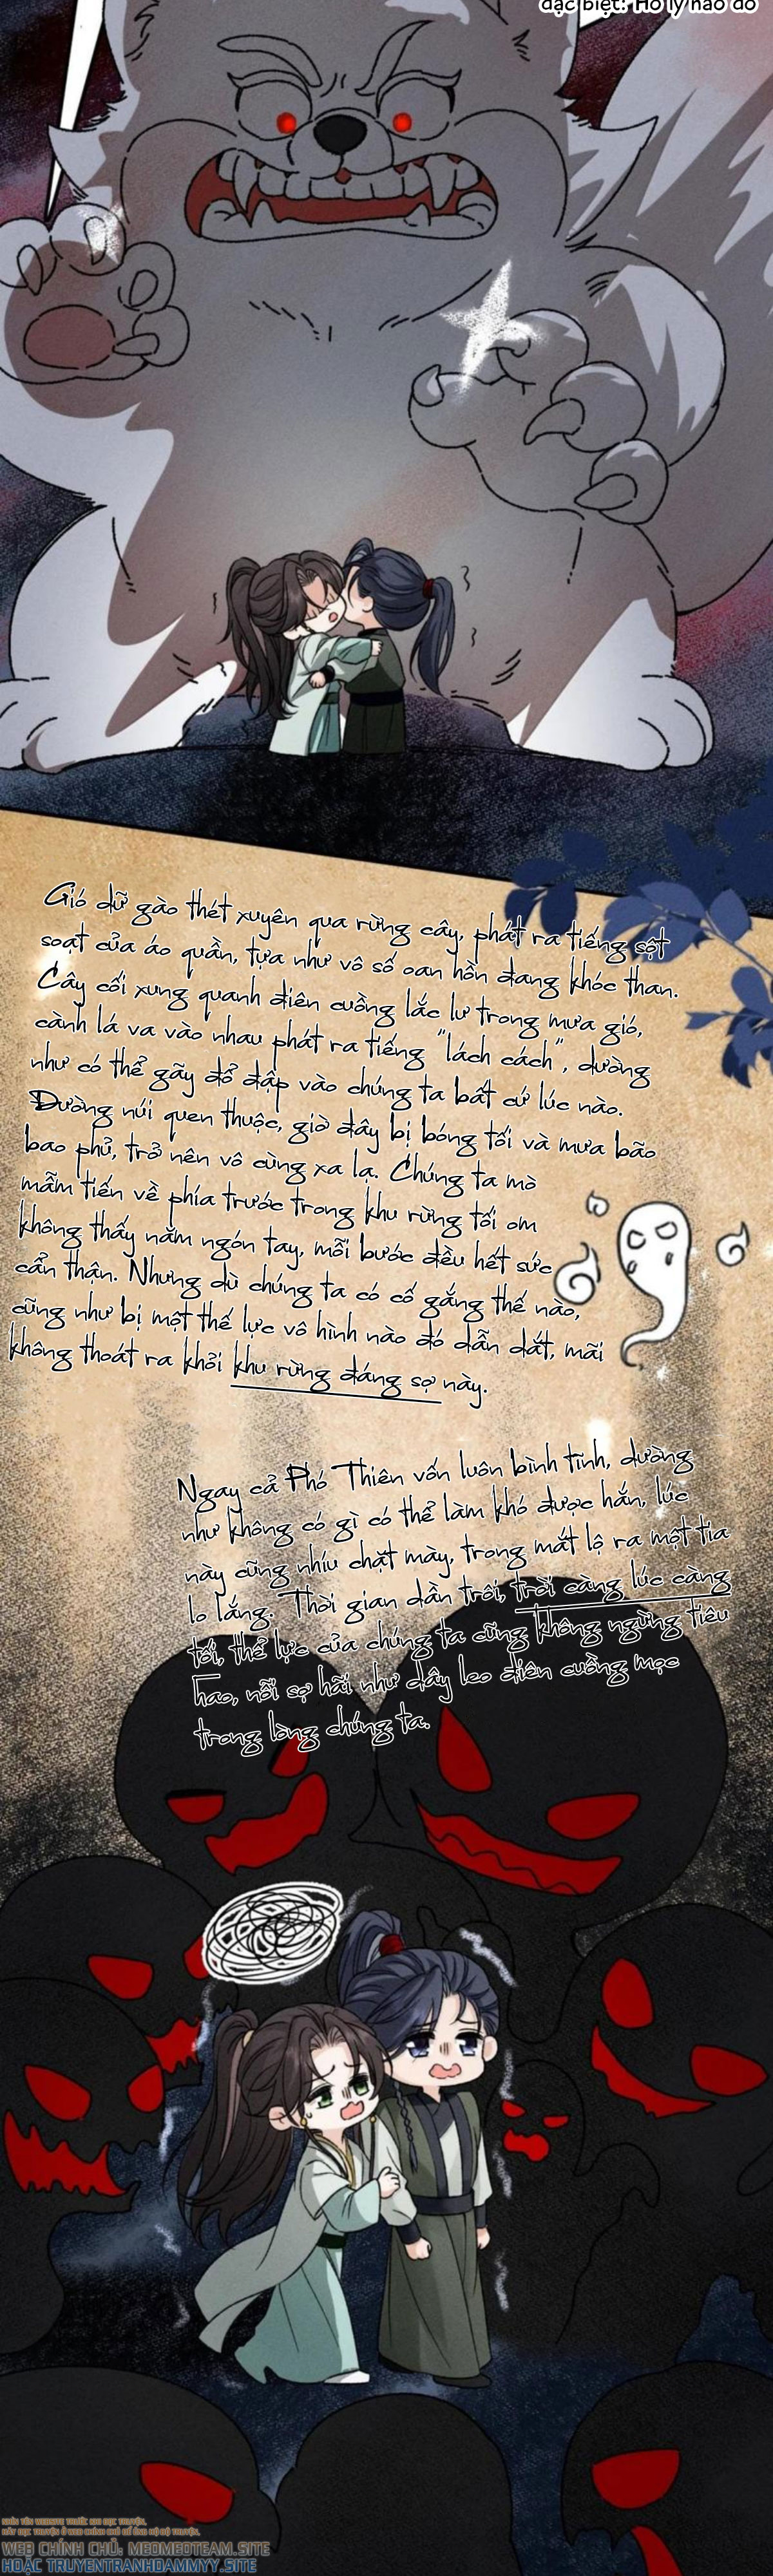 đặc biệt: Hồ ly nào đó
Gió dữ gào thét xuyên qua rừng cây, phát ra tiếng sột
soạt của áo quần, tựa như vô số oan hồn đang khóc than.
Cây cối xung quanh điên cuồng lắc lư trong mưa gió,
cành lá va vào nhau phát ra tiếng "lách cách", dường
như có thể gãy đổ đập vào chúng ta bất cứ lúc nào.
Đường núi quen thuộc, giờ đây bị bóng tối và mưa bão
bao phủ, trở nên vô cùng xa lạ. Chúng ta mò
mẫm tiến về phía trước trong khu rừng tối om
không thấy năm ngón tay, mỗi bước đều hết sức
cẩn thận. Nhưng dù chúng ta có cố gắng thế nào,
cũng như bị một thế lực vô hình nào đó dẫn dắt, mãi
không thoát ra khỏi khu rừng đáng sợ này.
Ngay cả Phó Thiên vốn luôn bình tĩnh, dường
như không có gì có thể làm khó được hắn, lúc
này cũng nhíu chặt mày, trong mắt lộ ra một tia
lo lắng. Thời gian dần trôi, trời càng lúc càng
tối, thể lực của chúng ta cũng không ngừng tiêu
hao, nỗi sợ hãi như dây leo điên cuồng mọc
trong lòng chúng ta.
NHÌN TÊN WEBSITE TRƯỚC KHI ĐỌC TRUYỆN.
HÃY ĐỌC TRUYỆN Ở WEB CHÍNH CHỦ ĐỂ ỦNG HỘ BỘ TRUYỆN.
WEB CHÍNH CHỦ: MEOMEOTEAM.SITE
HOẶC TRUYENTRANHDAMMYY.SITE